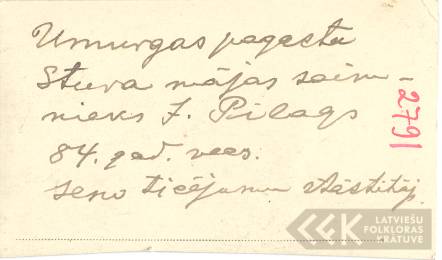 Umurgas pagasta
Stura mājas saim-
nieks J. Pilags
84. gad. vecs.
seno ticējumu stāstītāj.
2791
LATVIEŠU
FOLKLORAS
KRĀTUVE